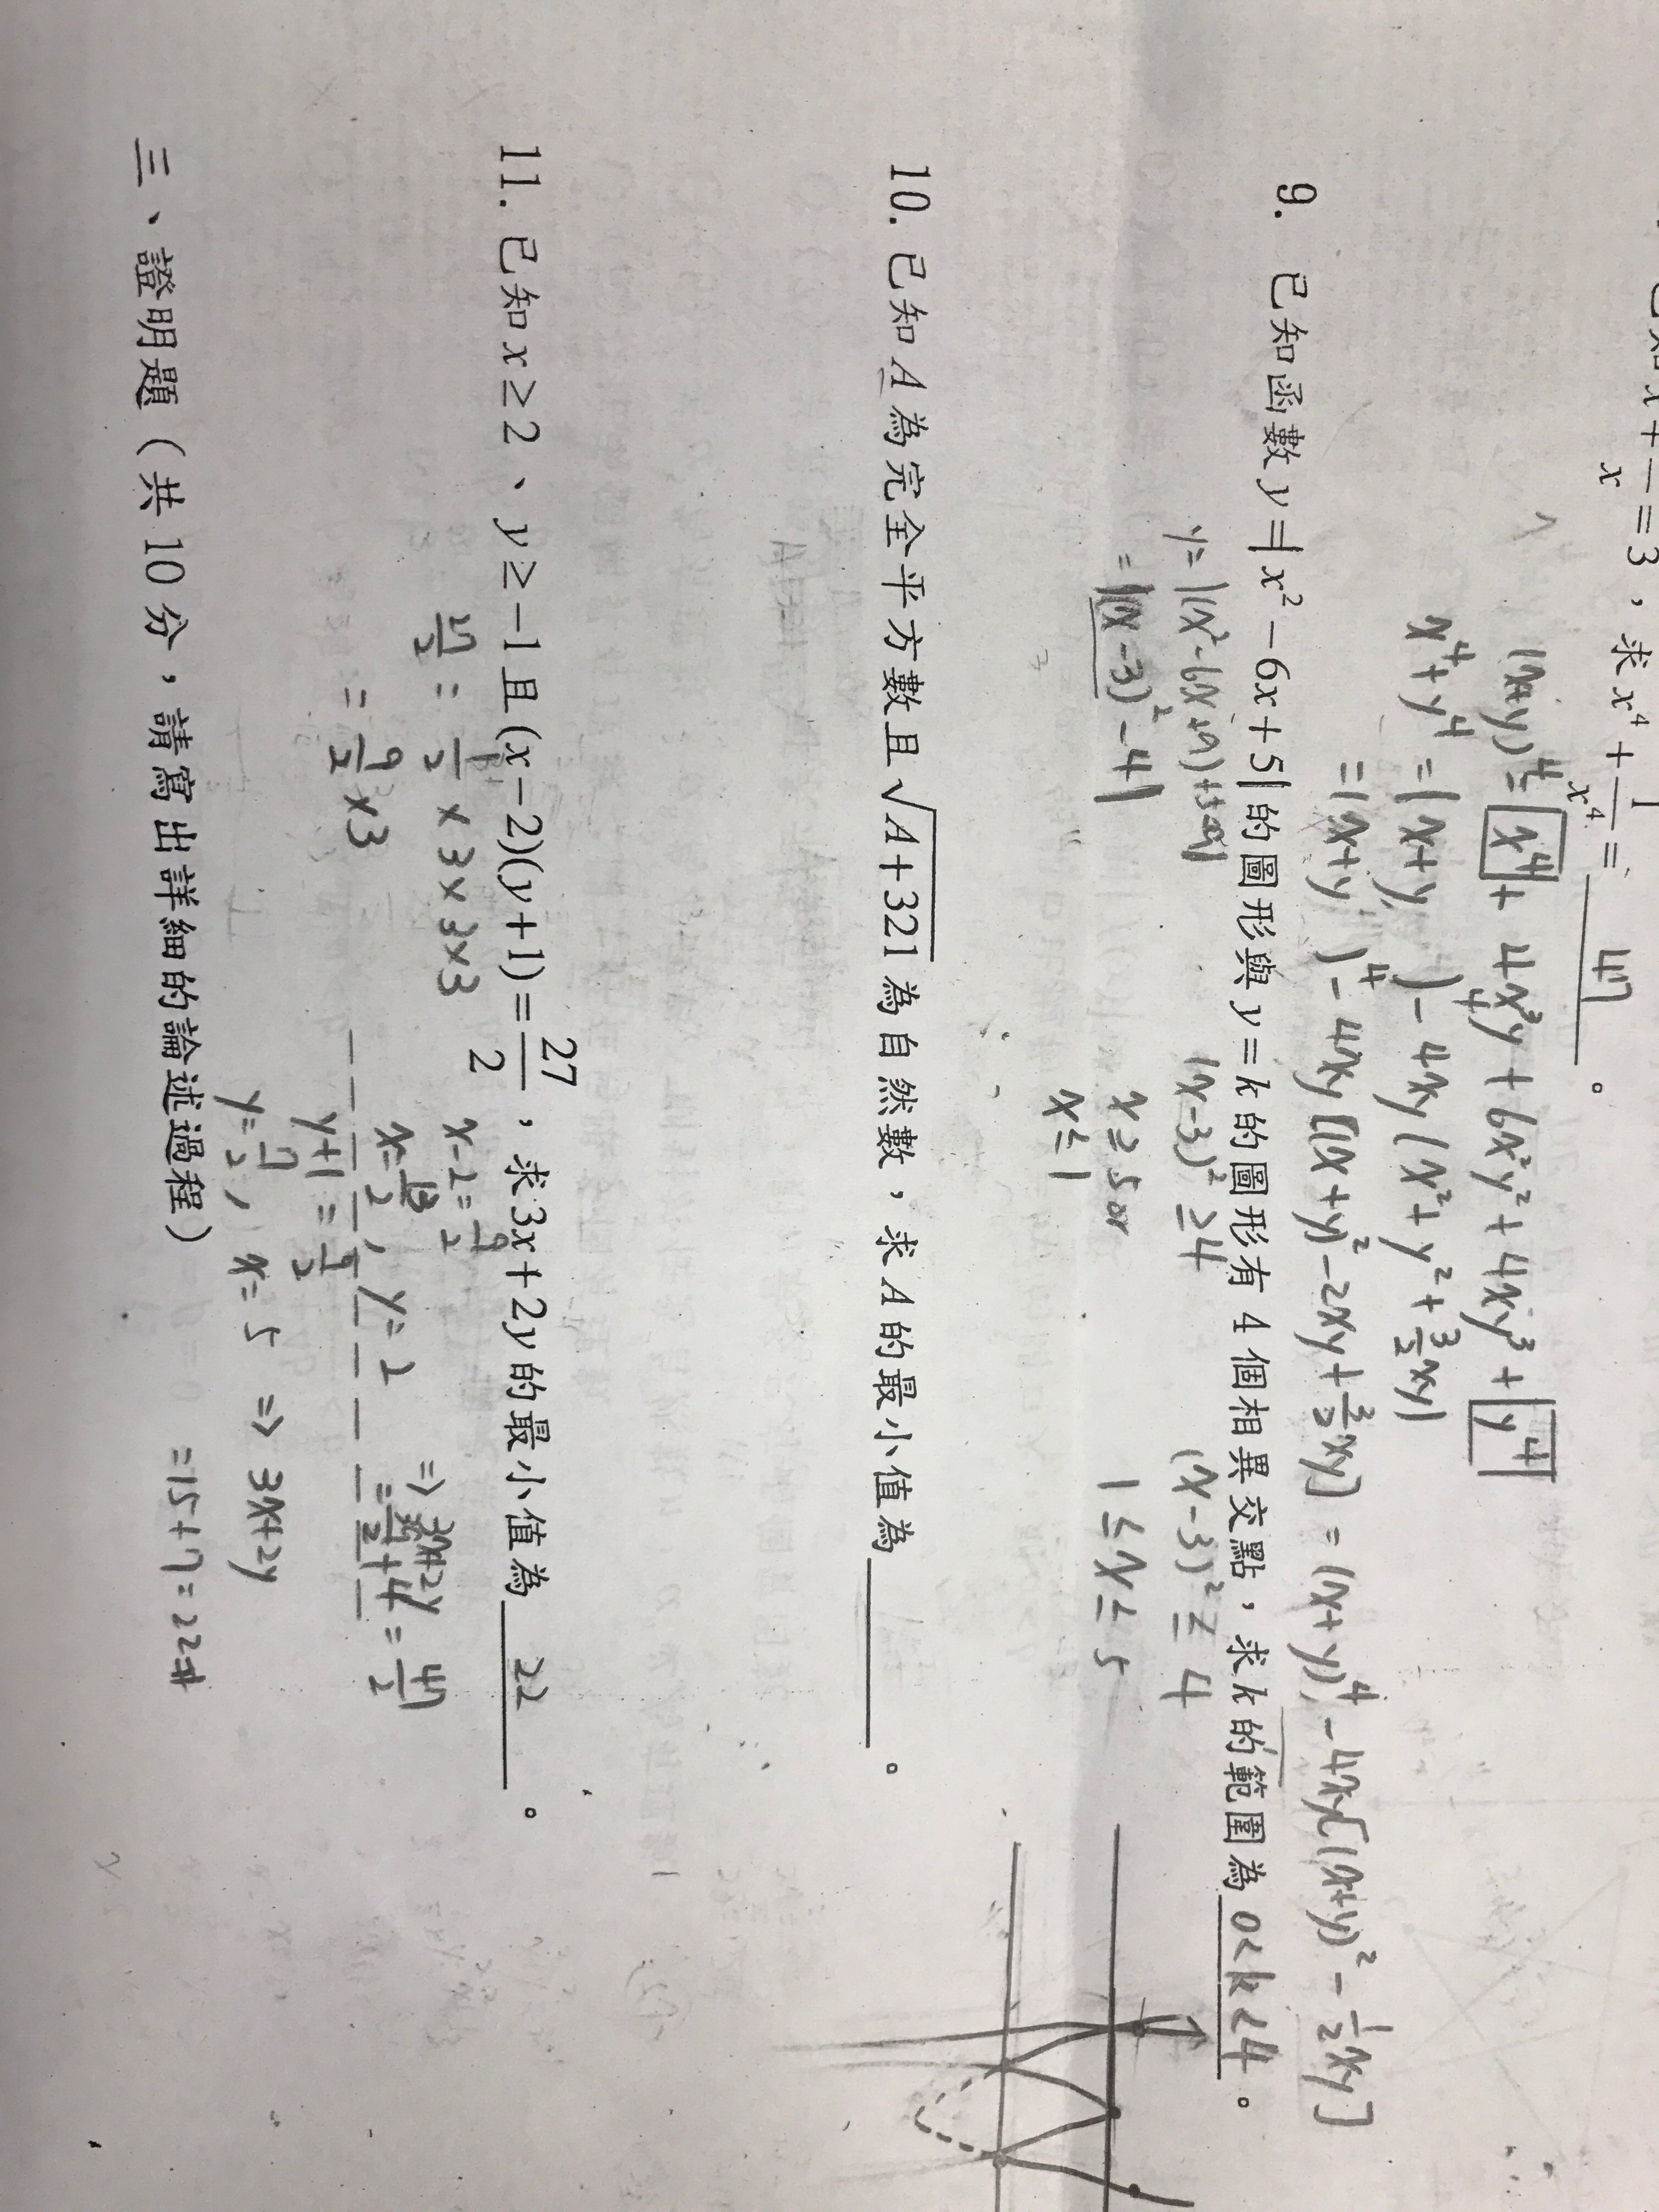 已知 x + 1/x = 3，求 x⁴ + 1/x⁴ = 47 。
(x+y)⁴ = x⁴ + 4x³y + 6x²y² + 4xy³ + y⁴
x⁴ + y⁴ = (x+y)⁴ - 4xy(x² + y² + 3/2xy)
= (x+y)⁴ - 4xy[(x+y)² - 2xy + 3/2xy] = (x+y)⁴ - 4xy[(x+y)² - 1/2xy]
9. 已知函數 y =| x² - 6x + 5| 的圖形與 y = k 的圖形有 4 個相異交點，求 k 的範圍為 0<k<4 。
y = |(x² - 6x + 9) + 5 - 9|
= |(x - 3)² - 4|
(x - 3)² ≥ 4
x ≥ 5 or
x ≤ 1
(x - 3)² ≤ 4
1 ≤ x ≤ 5
10. 已知 A 為完全平方數且 √(A + 321) 為自然數，求 A 的最小值為 ______ 。
11. 已知 x ≥ 2、y ≥ -1 且 (x - 2)(y + 1) = 27/2，求 3x + 2y 的最小值為 22 。
27/2 = 1/2 × 3 × 3 × 3
= 9/2 × 3
x - 2 = 9/2
x = 13/2, y = 2
⇒ 3x+2y
= 39/2 + 4 = 47/2
y + 1 = 9/2
y = 7/2, x = 5 ⇒ 3x + 2y
= 15 + 7 = 22#
三、證明題（共 10 分，請寫出詳細的論述過程）